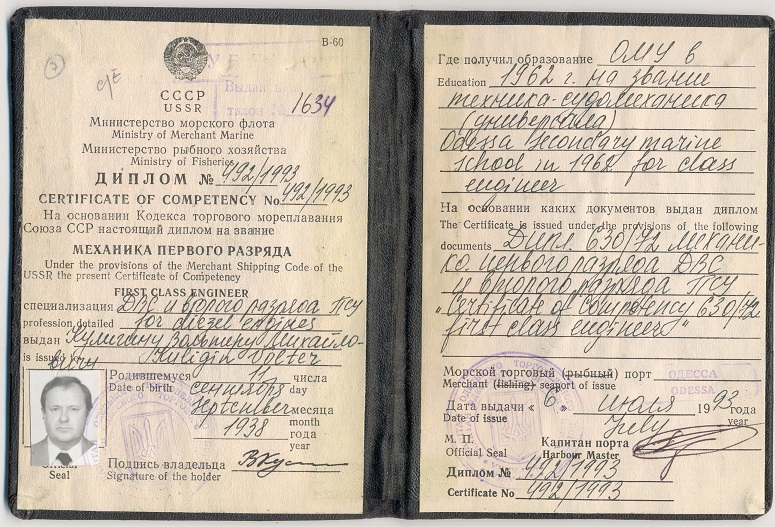 В-60
СССР
USSR
1634
Министерство морского флота
Ministry of Merchant Marine
Министерство рыбного хозяйства
Ministry of Fisheries
ДИПЛОМ № 492/1993
CERTIFICATE OF COMPETENCY No 492/1993
На основании Кодекса торгового мореплавания
Союза ССР настоящий диплом на звание
МЕХАНИКА ПЕРВОГО РАЗРЯДА
Under the provisions of the Merchant Shipping Code of the
USSR the present Certificate of Competency
FIRST CLASS ENGINEER
специализация ДВС и второго разряда ПСУ
profession detailed for diesel engines
выдан Кулигину Вальтеру Михайло-
вичу
is issued to Kuligin Volter
Родившемуся 11 числа
Date of birth day
сентября месяца
September month
1938 года
year
Official
Seal
Подпись владельца
Signature of the holder
Где получил образование ОМУ в
Education 1962 г. на звание
техника-судомеханика
(универсала)
Odessa Secondary marine
School in 1962 for class
engineer
На основании каких документов выдан диплом
The Certificate is issued under the provisions of the following
documents Дипл. 630/72 механи-
ка первого разряда ДВС
и второго разряда ПСУ
"Certificate of Competency 630/72
first class engineer"
Морской торговый (рыбный) порт ОДЕССА
Merchant (fishing) seaport of issue ODESSA
Дата выдачи « 6 » июля 1993 года
Date of issue July year
М. П. Капитан порта
Official Seal Harbour Master
Диплом № 492/1993
Certificate No 492/1993